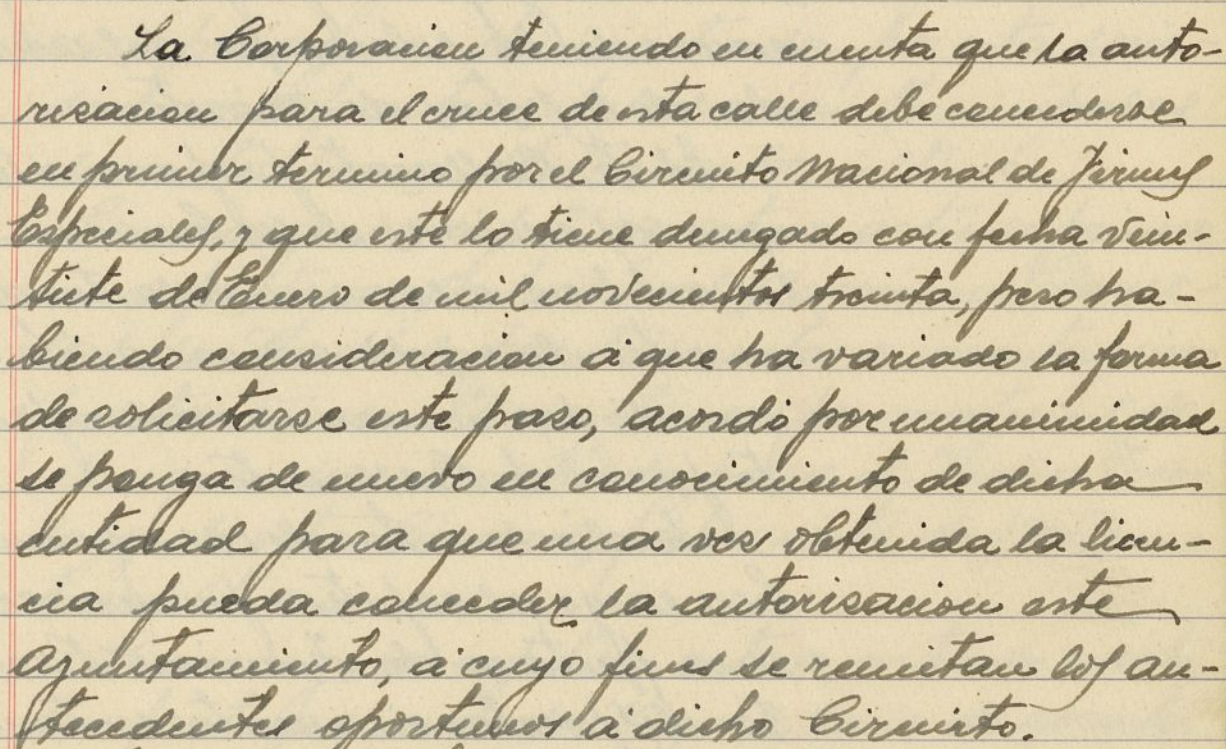 La Corporacion teniendo en cuenta que la auto-
rización para el cruce de esta calle debe concederse
en primer termino por el Circuito Nacional de Firmes
Especiales, y que este lo tiene denegado con fecha vein-
tiete de Enero de mil novecientos treinta, pero ha-
biendo consideracion á que ha variado la forma
de solicitarse este paso, acordó por unanimidad
se ponga de nuevo en conocimiento de dicha
entidad para que una vez obtenida la licen-
cia pueda conceder la autorizacion este
Ayuntamiento, á cuyo fines se remitan los an-
tecedentes oportunos á dicho Circuito.